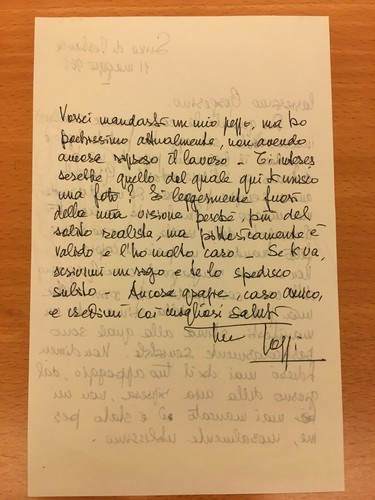 Vorrei mandarti un mio pezzo, ma ho
pochissimo attualmente, non avendo
ancora ripreso il lavoro - Ti interes
serebbe quello del quale qui ti unisco
una foto? È leggermente fuori
della mia visione perché, più del
solito realista, ma pittoricamente è
valido e l'ho molto caro - Se ti va,
scrivimi un rigo e te lo spedisco
subito - Ancora grazie, caro amico,
e credimi coi migliori saluti
tuo